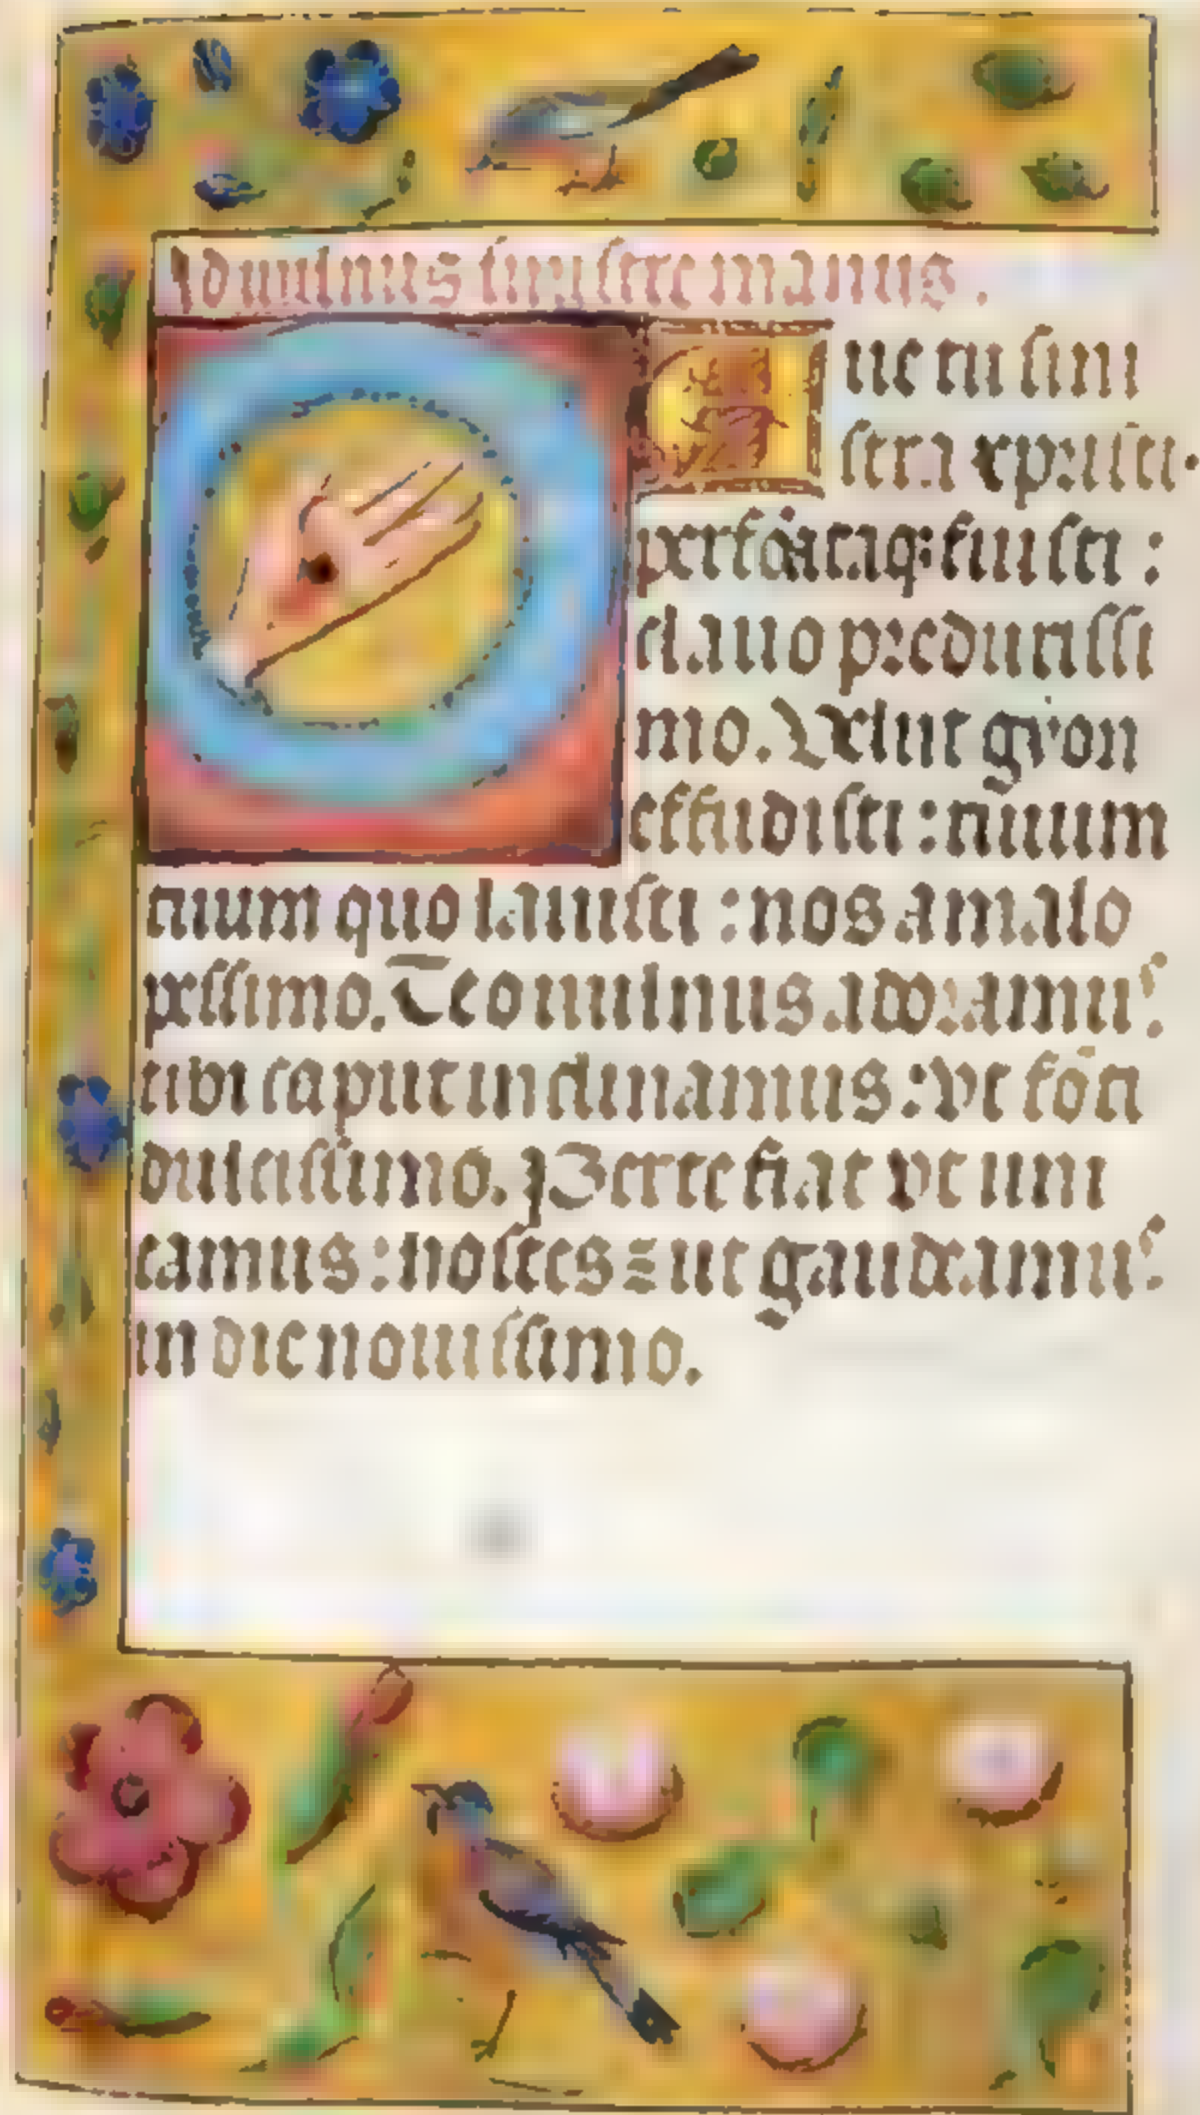 Ad vulnus sinistre manus.
Aue tu sini
stra xpristi.
perforataq; fuisti :
clauo predurissi
mo. Velut gron
effudisti : riuum
tuum quo lauisti : nos a malo
pessimo. Te o vulnus adoramus
tibi caput inclinamus : vt fōti
dulcissimo. Per te fiat vt uin
camus : hostes z ut gaudeamus
in die nouissimo.